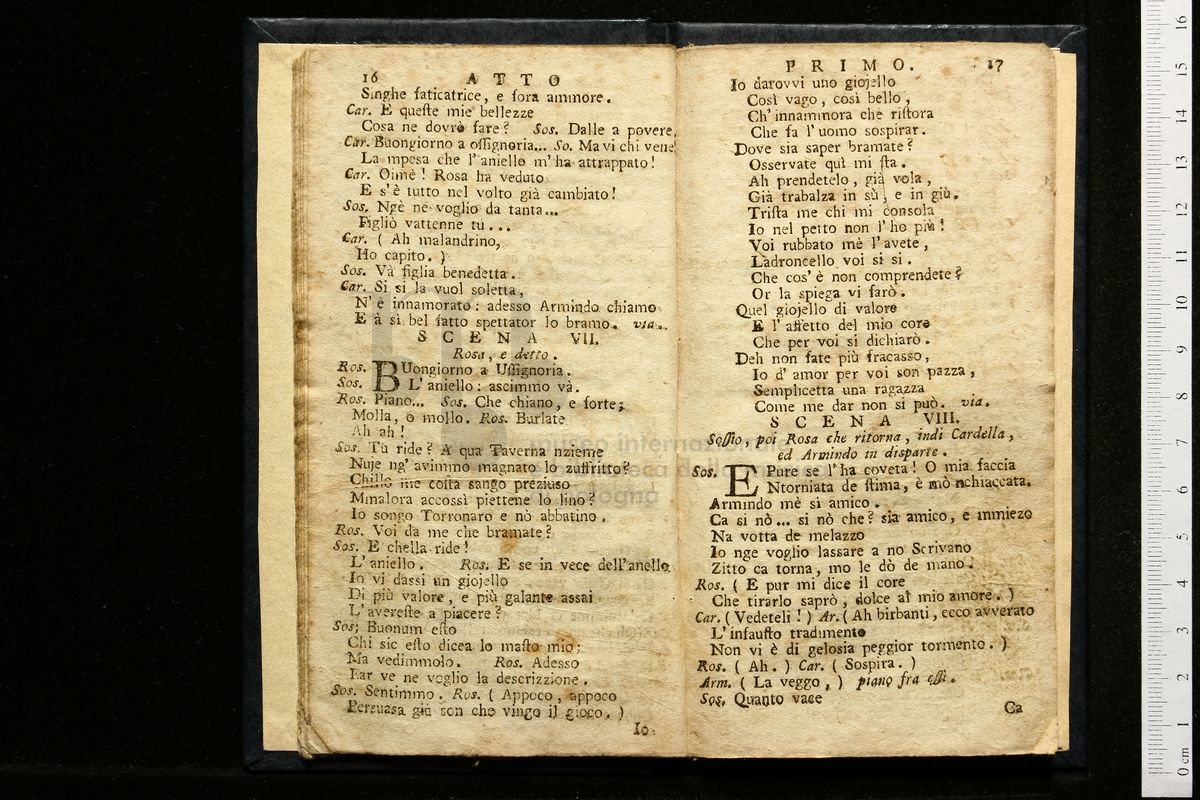 16 ATTO
Singhe faticatrice, e fora ammore.
Car. E queſte mie bellezze
Coſa ne dovrò fare? Sos. Dalle a povere,
Car. Buongiorno a oſſignoria... So. Ma vi chi vene!
La mpesa che l'aniello m' ha attrappato!
Car. Oimè! Roſa ha veduto
E s'è tutto nel volto già cambiato!
Sos. Ngè ne voglio da tanta...
Figliò vattenne tu...
Car. ( Ah malandrino,
Ho capito. )
Sos. Và figlia benedetta.
Car. Si si la vuol ſoletta,
N' è innamorato: adesso Armindo chiamo
E à sì bel fatto spettator lo bramo. via.
SCENA VII.
Roſa, e detto.
Ros. BUongiorno a Uſſignoria.
Sos. L'aniello: ascimmo và.
Ros. Piano... Sos. Che chiano, e forte;
Molla, o mollo. Ros. Burlate
Ah ah!
Sos. Tu ride? A qua Taverna nzieme
Nuje ng' avimmo magnato lo zuffritto?
Chillo me coſta sango preziuso
Minalora accossì piettene lo lino?
Io songo Torronaro e nò abbatino.
Ros. Voi da me che bramate?
Sos. E chella ride!
L'aniello. Ros. E se in vece dell'anello
Io vi dassi un giojello
Di più valore, e più galante assai
L'avereſte a piacere?
Sos. Buonum eſto
Chi sic eſto dicea lo maſto mio;
Ma vedimmolo. Ros. Adesso
Far ve ne voglio la descrizzione.
Sos. Sentimmo. Ros. ( Appoco, appoco
Persuasa già son che vingo il gioco. )
Io
PRIMO. 17
Io darovvi uno giojello
Così vago, così bello,
Ch' innammora che riſtora
Che fa l'uomo sospirar.
Dove sia saper bramate?
Osservate quì mi ſta.
Ah prendetelo, già vola,
Già trabalza in sù, e in giù.
Triſta me chi mi consola
Io nel petto non l'ho più!
Voi rubbato mè l'avete,
Ladroncello voi si si.
Che cos' è non comprendete?
Or la spiega vi farò.
Quel giojello di valore
E l'affetto del mio core
Che per voi si dichiarò.
Deh non fate più fracasso,
Io d'amor per voi son pazza,
Semplicetta una ragazza
Come me dar non si può. via.
SCENA VIII.
Soſſio, poi Rosa che ritorna, indi Cardella,
ed Armindo in disparte.
Sos. EPure se l'ha coveta! O mia faccia
Ntorniata de ſtima, è mò nchiaccata.
Armindo mè si amico.
Ca si nò... si nò che? sia amico, e mmiezo
Na votta de melazzo
Io nge voglio lassare a no Scrivano
Zitto ca torna, mo le dò de mano.
Ros. ( E pur mi dice il core
Che tirarlo saprò, dolce al mio amore. )
Car. ( Vedeteli! ) Ar. ( Ah birbanti, ecco avverato
L'infauſto tradimento
Non vi è di gelosia peggior tormento. )
Ros. ( Ah. ) Car. ( Sospira. )
Arm. ( La veggo, ) piano fra eſſi.
Sos. Quanto vace
Ca